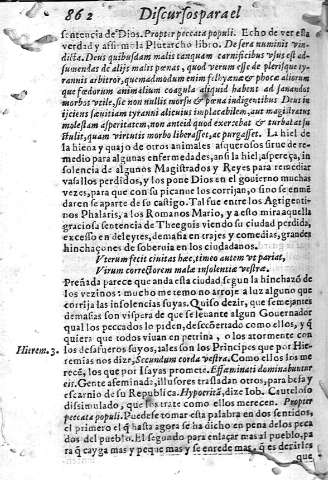 862 Discursos para el
sentencia de Dios. Propter peccata populi. Echo de ver esta
verdad y affirmola Plutarcho libro. De sera numinis vin-
dicta. Deus quibusdam malis tanquam carnificibus vsus est ad-
sumendas de alijs malis pœnas, quod verum esse de plerisque ty-
rannis arbitror, quemadmodum enim fel hyænæ & phocæ aliorum-
que fœdorum animalium coagula aliquid habent ad sanandos
morbos vtile, sic non nullis morsu & pœna indigentibus Deus in-
ijciens sæuitiam tyranni alicuius implacabilem, aut magistratus
molestam asperitatem, non anteid quod exercebat & turbabat su-
stulit, quam virtutis morbo liberasset, ac purgasset. La hiel de
la hiena y quajo de otros animales asquerosos sirue de re-
medio para algunas enfermedades, ansi la hiel, aspereça, in-
solencia de algunos Magistrados y Reyes para remediar
vasallos perdidos, y los pone Dios en el gouierno muchas
vezes, para que con su picanue los corrijan, o sino se enmẽ
daren se aparte de su castigo. Tal fue entre los Agrigenti-
nos Phalaris, a los Romanos Mario, y a esto mira aquella
graciosa sentencia de Theegnis viendo su ciudad perdida,
excesso en deleytes, demasia en trajes y comedias, grandes
hinchaçones de soberuia en los ciudadanos.
Vterum fecit ciuitas hæc, timeo autem ve pariat,
Virum correctorem malæ insolentiæ vestræ.
Preñada parece que anda esta ciudad, segun la hinchazõ de
los vezinos: mucho me temo no arroje a luz alguno que
corrija las insolencias suyas. Quiso dezir, que semejantes
demasias son vispera de que se leuante algun Gouernador
qual los peccados lo piden, descõcertado como ellos, y q̃
quiera que todos viuan en petrina, o los atormente con
Hierem. 3. los desafueros suyos, ales son los Principes que por Hie-
remias nos dize, Secundum corda vestra. Como ellos los me
recẽ, los que por Isayas promete. Effœminati dominabuntur
eis. Gente afeminada, illusores trasladan otros, para befa y
escarnio de su Republica. Hypocrita, dize Iob. Cauteloso
dissimulado, que los trate como ellos merecen. Propter
peccata populi. Puedese tomar esta palabra en dos sentidos,
el primero el q̃ hasta agora se ha dicho en pena de los peca
dos del pueblo. El segundo para enlaçar mas al pueblo, pa
ra q̃ cayga mas y peque mas y se enrede mas, q̃ es derirles
que